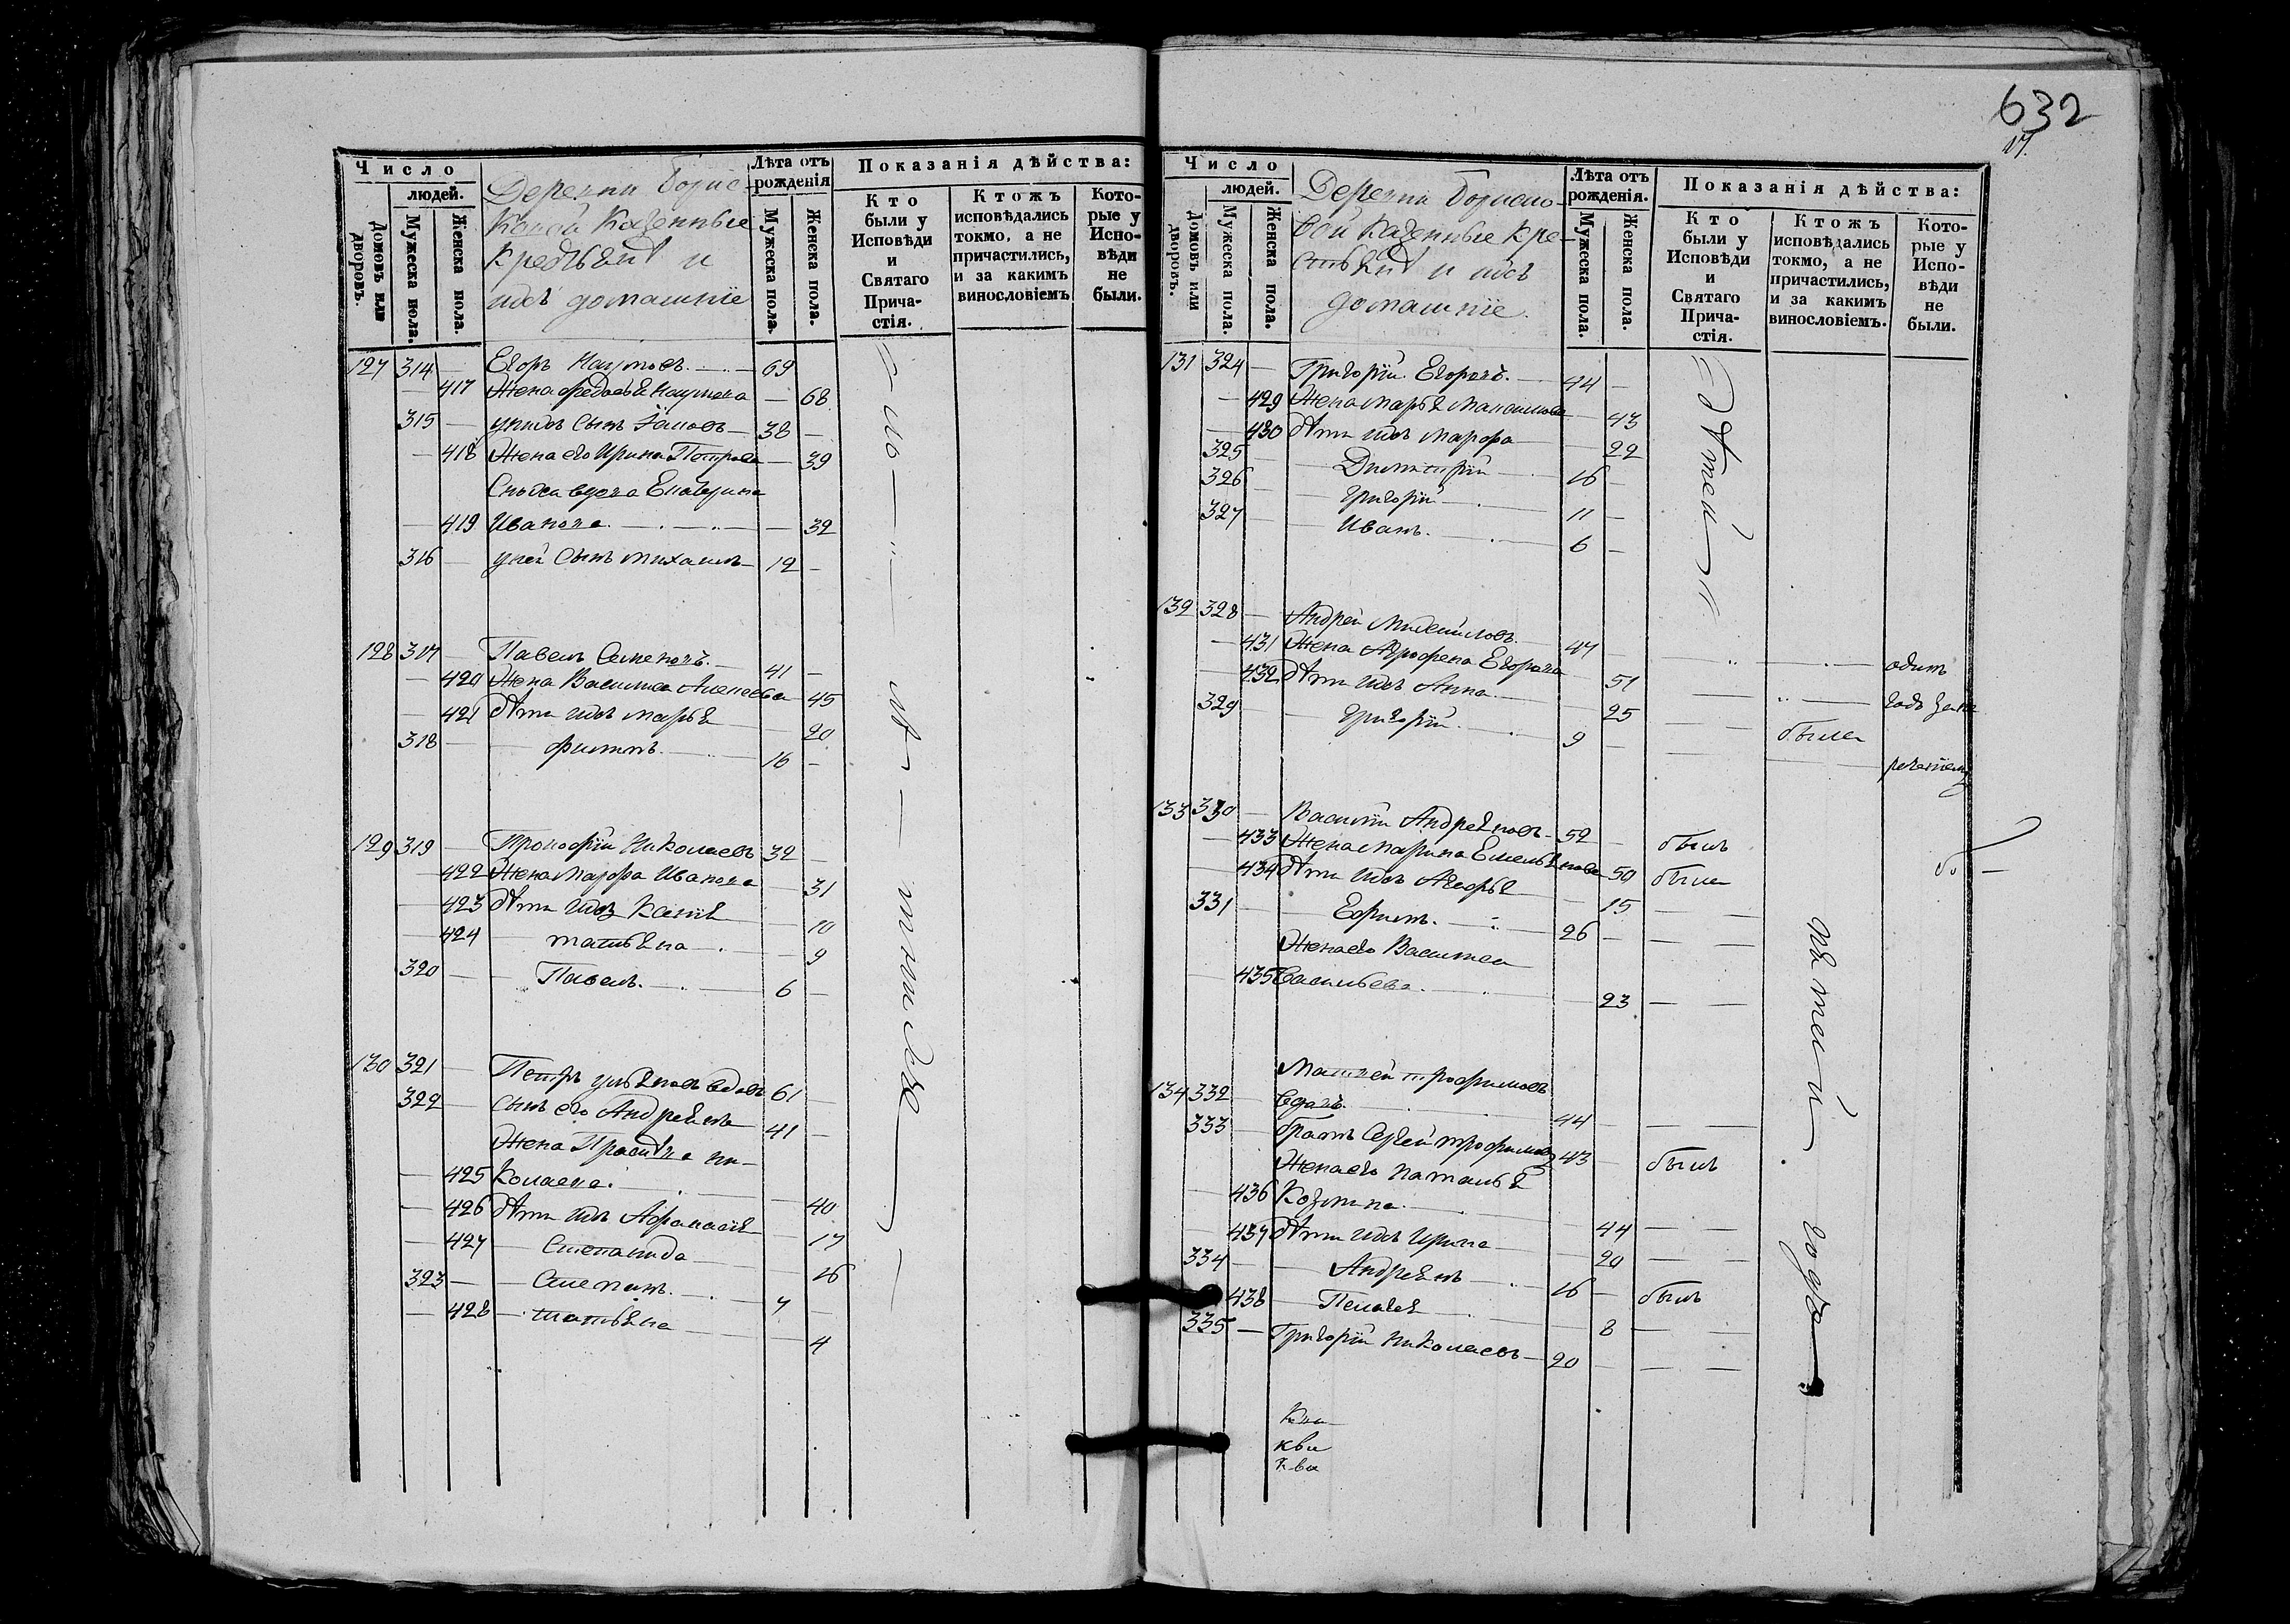 632
17.
Число
людей.
Домовъ или дворовъ.
Мужеска пола.
Женска пола.
Деревни Борис-
Казенные
и
ихъ домашніе
Лѣта отъ рожденія
Мужеска пола.
Женска пола.
Показанія дѣйства:
Кто были у Исповѣди и Святаго Прича-стія.
Ктожъ исповѣдались токмо, а не причастились, и за какимъ винословіемъ
Кото-рые у Испо-вѣди не были.
127 314 — Егоръ Наумовъ. — 69
— 417 Жена Наумова — 68
315 — у нихъ сынъ — 38 —
— 418 Жена его Ирина Петрова — 39
Сноха вдова Екатерина
— 419 Иванова. — — 32
316 — у ней сынъ Михаилъ — 12 —
128 317 — Павелъ Семеновъ. — 41 —
— 420 Жена Василиса Алексеева — 45
— 421 Дѣти ихъ Марья — 20
318 — Филипъ. — 16 —
129 319 — Прокофій Николаевъ 32 —
— 422 Жена Марфа Иванова — 31
— 423 Дѣти ихъ — 10
— 424 — татьяна — 9
320 — — Павелъ. — 6 —
130 321 — Петръ вдовъ 61 —
322 — Сынъ его Андреянъ 41 —
Жена Ни-
— 425 колаева. — 40
— 426 Дѣти ихъ Афанасія — 17
— 427 — Степанида — 16
323 — — Степанъ. — 7 —
— 428 — татьяна — 4
Число
людей.
Домовъ или дворовъ.
Мужеска пола.
Женска пола.
Деревни Борисо-
вой Казенные Кре-
и ихъ
домашніе.
Лѣта отъ рожденія.
Мужеска пола.
Женска пола.
Показанія дѣйства:
Кто были у Исповѣди и Святаго Прича-стія.
Ктожъ исповѣдались токмо, а не причастились, и за какимъ винословіемъ.
Кото-рые у Испо-вѣди не были.
131 324 — Григорій Егоровъ. — 44 —
— 429 Жена Марья Максимова — 43
— 430 Дѣти ихъ Марфа — 22
325 — Димитрій — 16 —
326 — Григорій — 11 —
327 — Иванъ. — 6 —
132 328 — Андрей — 47 — одинъ
— 431 Жена Егорова — 51
— 432 Дѣти ихъ Анна — 25 была
329 — Григорій. — 9 —
133 330 — Василій Андреяновъ — 52 — былъ
— 433 Жена Марина Емельянова 50 была
— 434 Дѣти ихъ — 15 — —
331 — Ефимъ. — 26 — —
Жена его Василиса
— 435 Васильева. — 23 — —
Матвей трофимовъ
134 332 — вдовъ. — 44 — — —
333 — братъ Сергей трофимовъ 43 — былъ
Жена его Наталья
— 436 Козмина. — 44 — —
— 437 Дѣти ихъ Ирина — 20 — —
334 — — Андреянъ — 16 — былъ
— 438 — Пелагея — 8 — —
335 — Григорій Николаевъ — 20 — — —